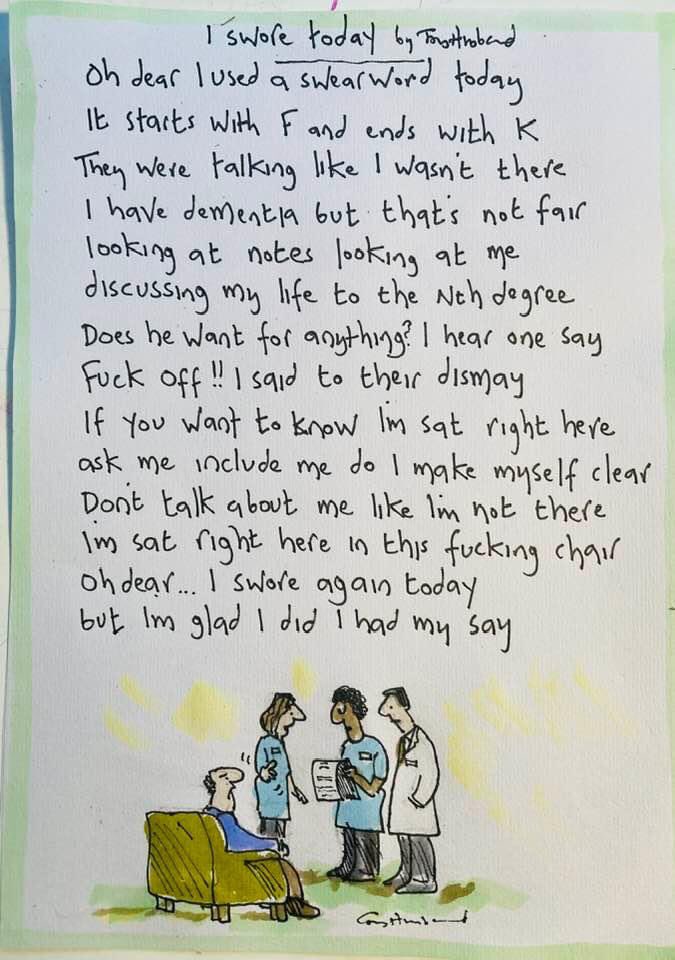 I swore today by Tony Husband
Oh dear I used a swear word today
It starts with F and ends with K
They were talking like I wasn't there
I have dementia but that's not fair
looking at notes looking at me
discussing my life to the Nth degree
Does he want for anything? I hear one say
Fuck off!! I said to their dismay
If you want to know I'm sat right here
ask me include me do I make myself clear
Don't talk about me like I'm not there
I'm sat right here in this fucking chair
oh dear... I swore again today
but Im glad I did I had my say
Tony Husband